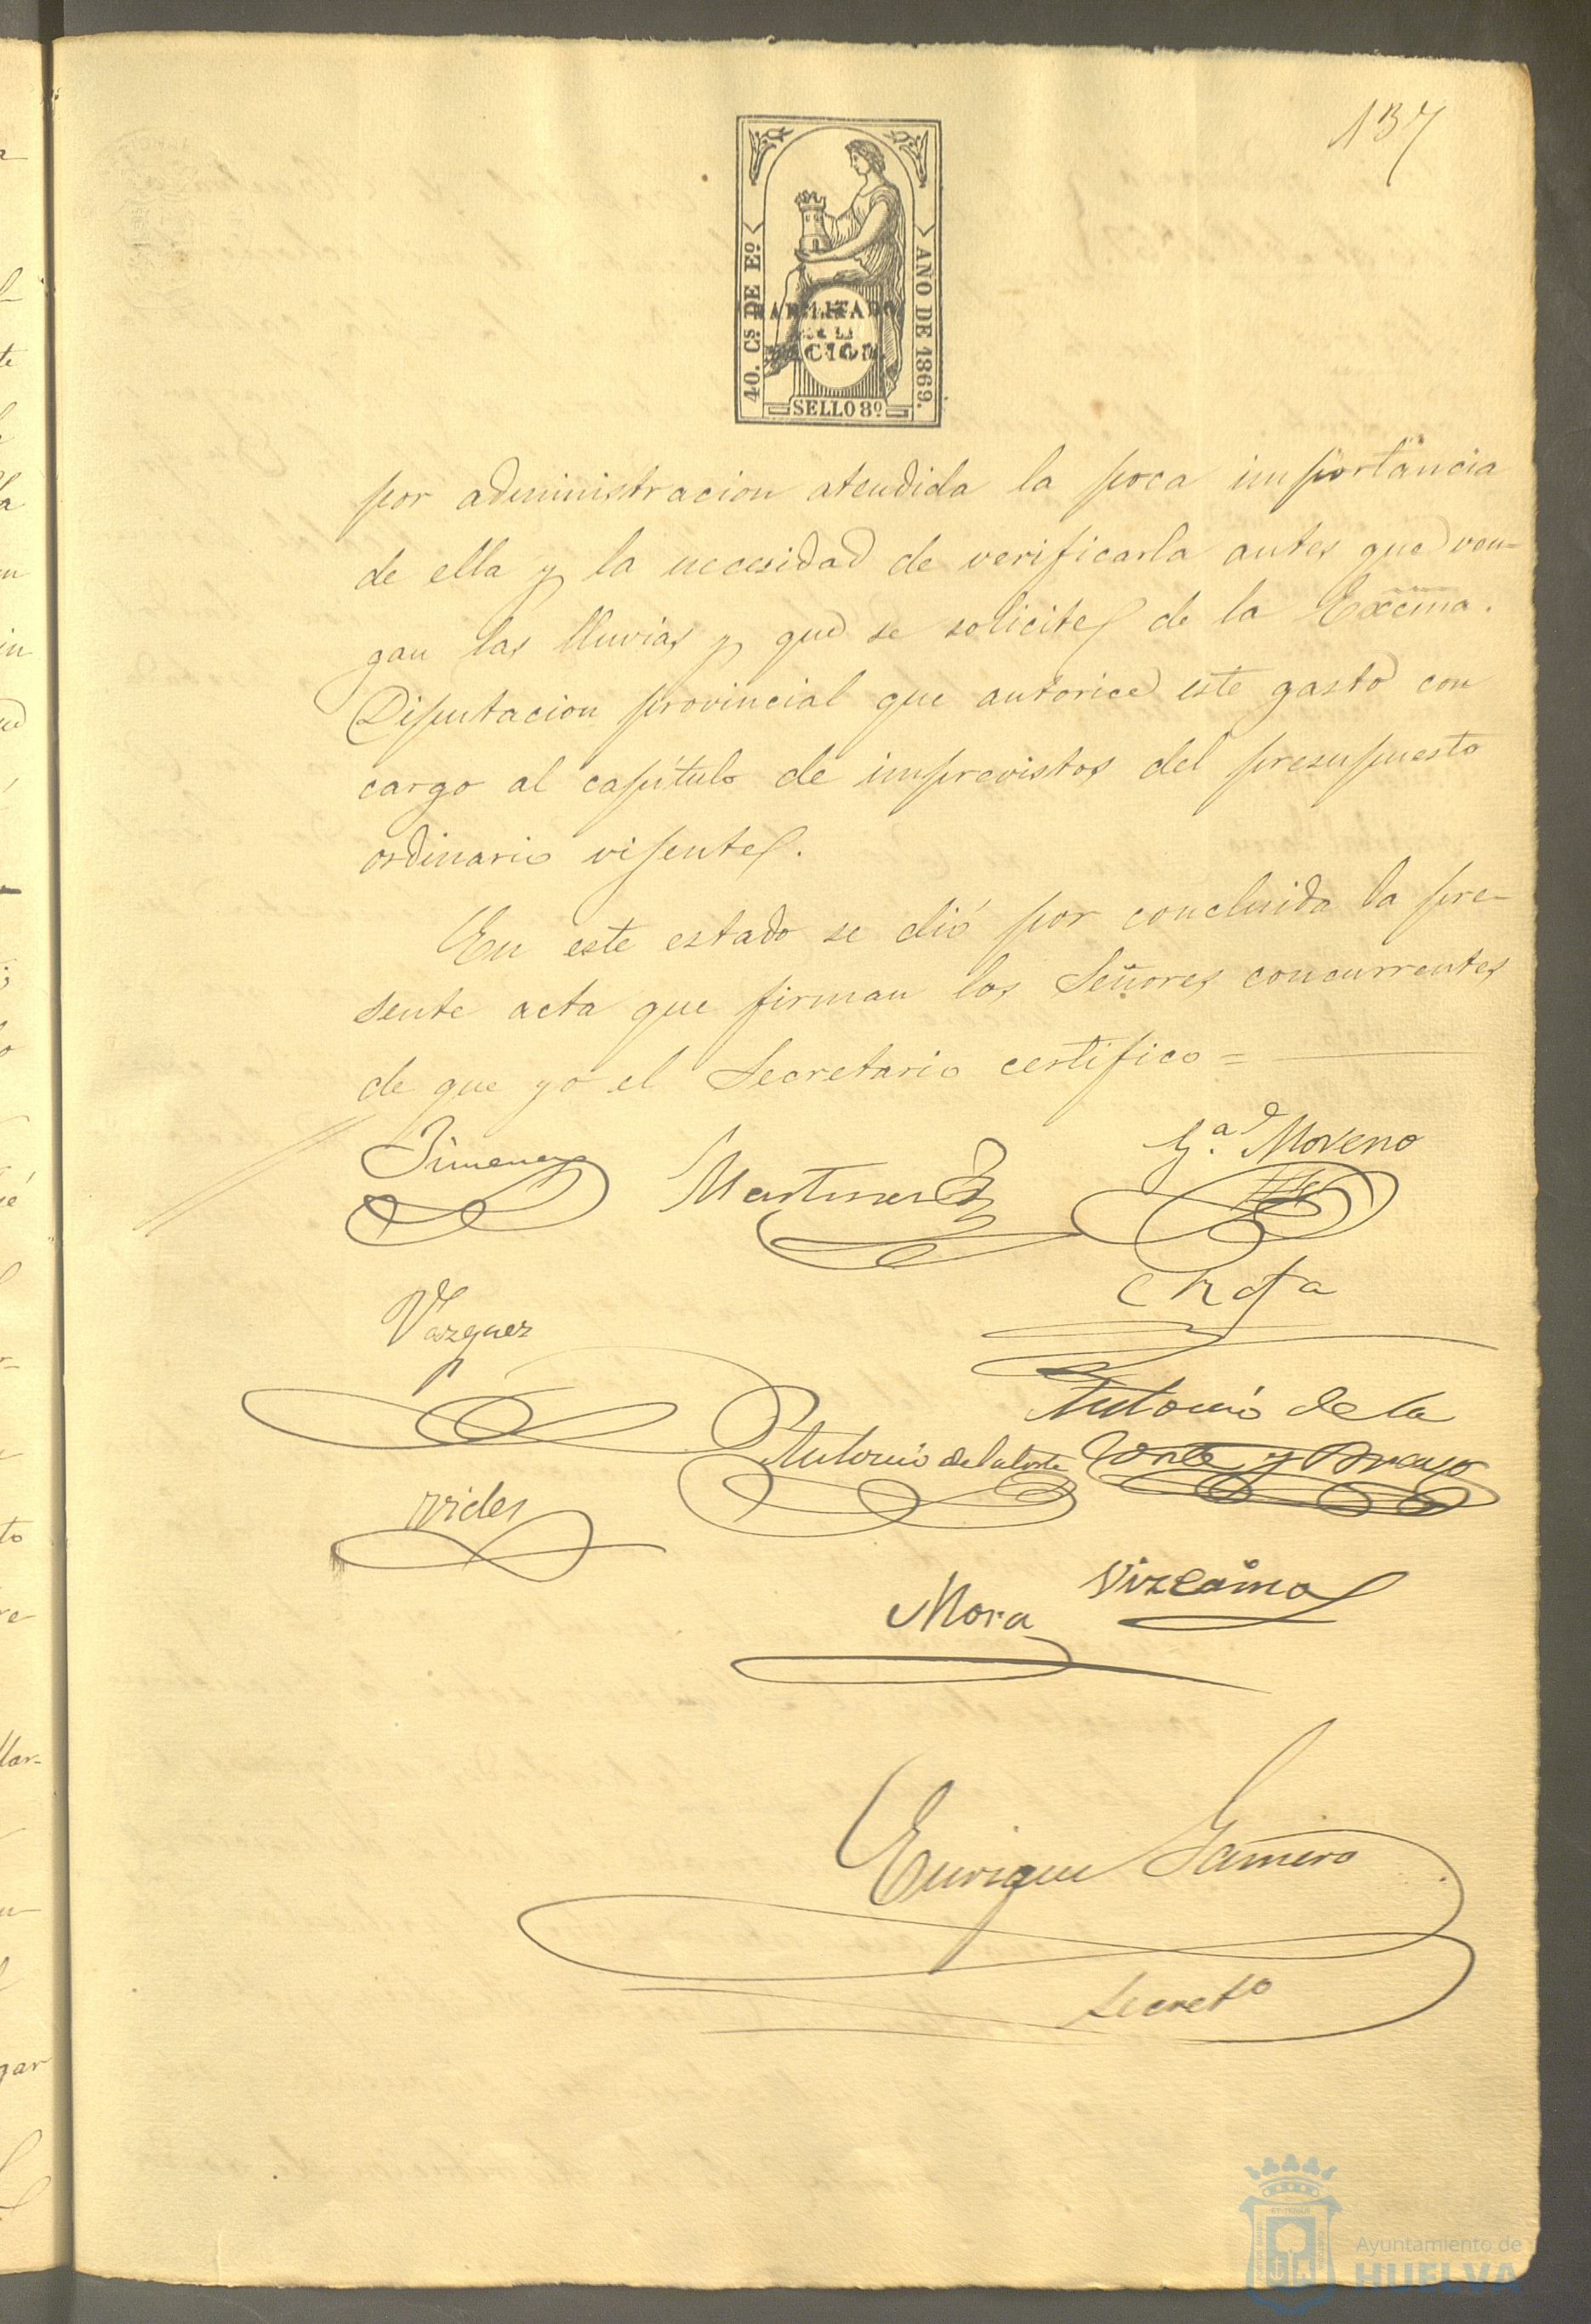 137
40. Cs. DE Eº.
AÑO DE 1869.
HABILITADO
POR LA
NACION.
SELLO 8º
por administracion atendida la poca importancia
de ella y la necesidad de verificarla antes que ven=
gan las lluvias y que se solicite de la Excma.
Diputacion provincial que autorice este gasto con
cargo al capítulo de imprevistos del presupuesto
ordinario vigente.
En este estado se dió por concluida la pre-
sente acta que firman los Señores concurrentes
de que yo el Secretario certifico =
Jimenez
Martinez
G.ª Moreno
Vazquez
Antonio de la
Antonio de la Corte
Corte y Bravo
Vides
Vizcaino
Mora
Enrique Gamero
Secretº
Ayuntamiento de
HUELVA